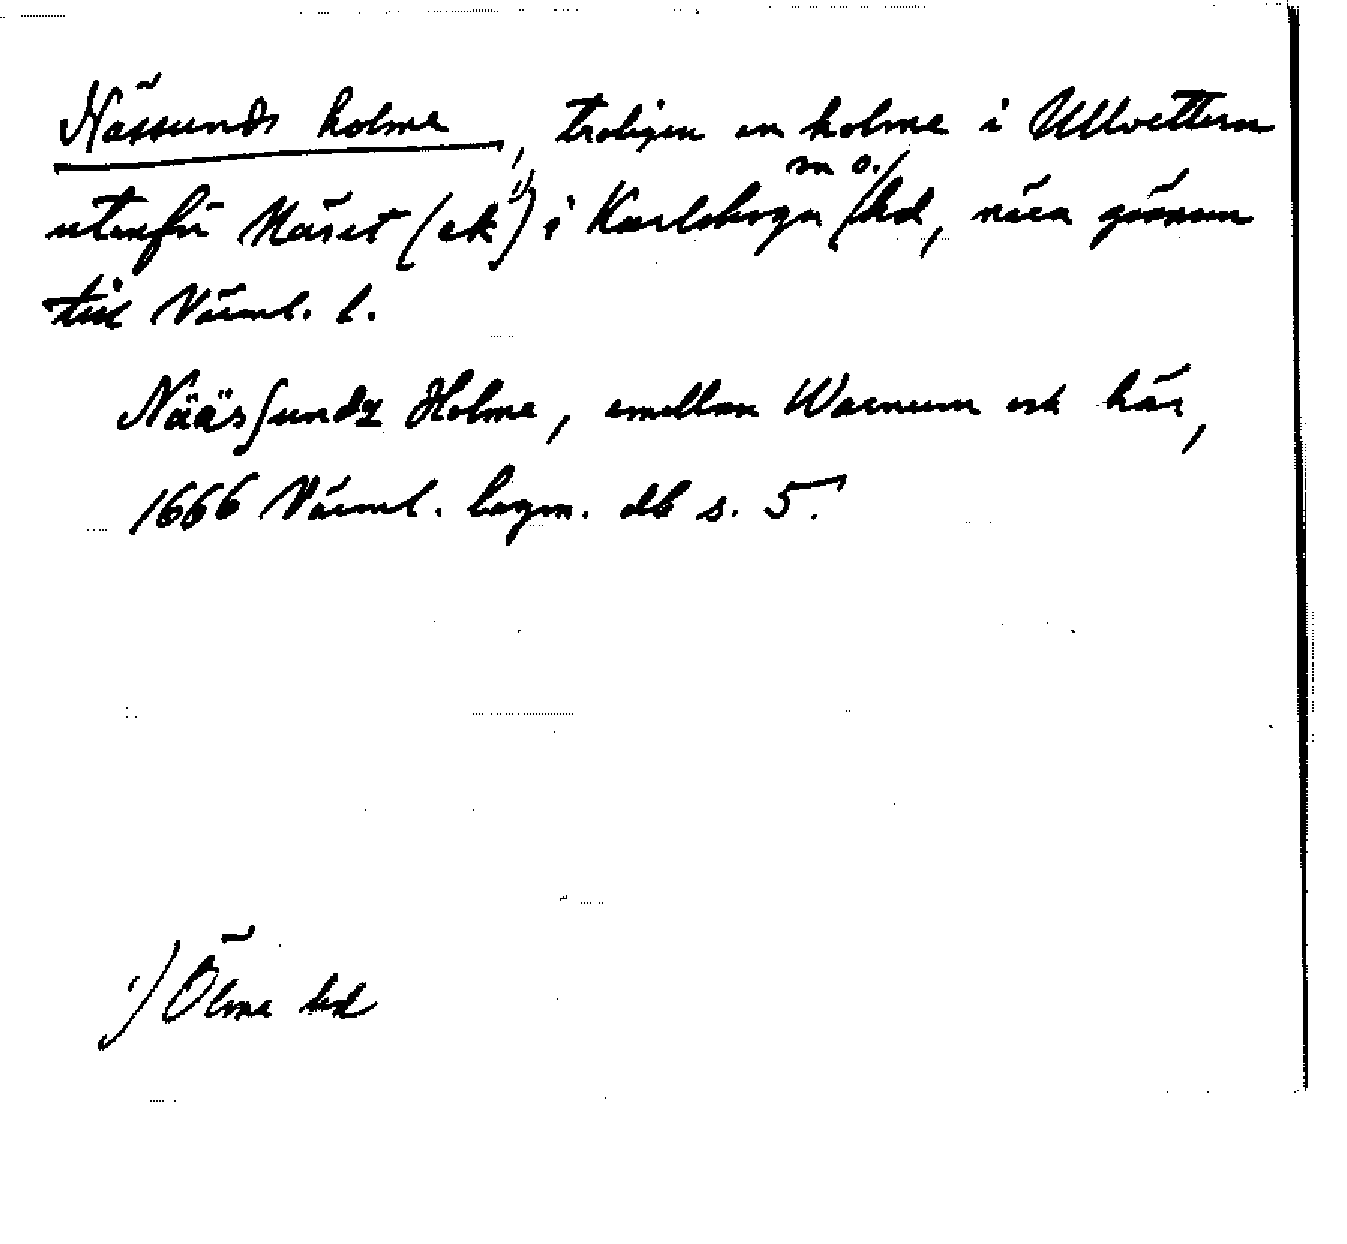 Nässunds holme, troligen en holme i Ullvettern
utanför Näset (ek¹⁾) i Karlskoga m o. hd, nära gränsen
till Värml. l.
Nääsſundz Holme, emellan Warnum och här,
1666 Värml. lagm. db s. 5.
¹⁾ Ölme hd